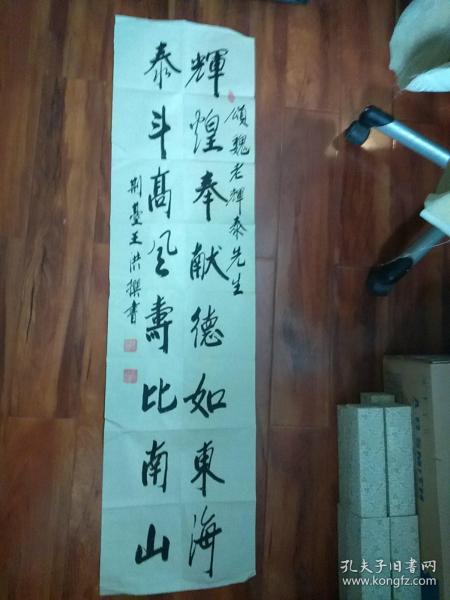 頌魏老輝泰先生
輝煌奉献德如東海
泰斗高风壽比南山
荆臺王洪撰書
孔夫子旧书网
www.kongfz.com